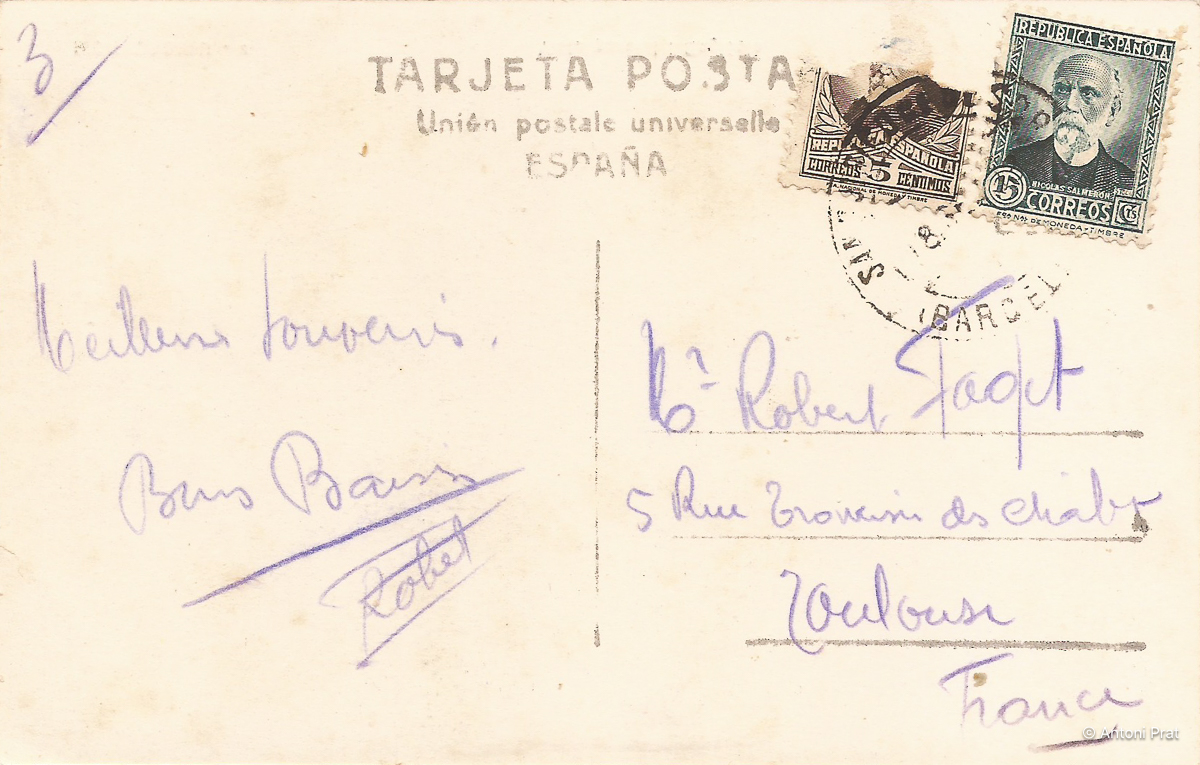 3
TARJETA POSTA
Unión postale universelle
ESPAÑA
REPUBLICA ESPAÑOLA
CORREOS 5 CENTIMOS
NACIONAL DE MONEDA Y TIMBRE
REPUBLICA ESPAÑOLA
NICOLAS SALMERON
15 CORREOS Cts
FCA NAL DE MONEDA Y TIMBRE
SAN
18
(BARCEL
Meilleurs souvenirs.
Bons Baisers
Robert
Mr Robert
5 Rue des
Toulouse
France
© Antoni Prat